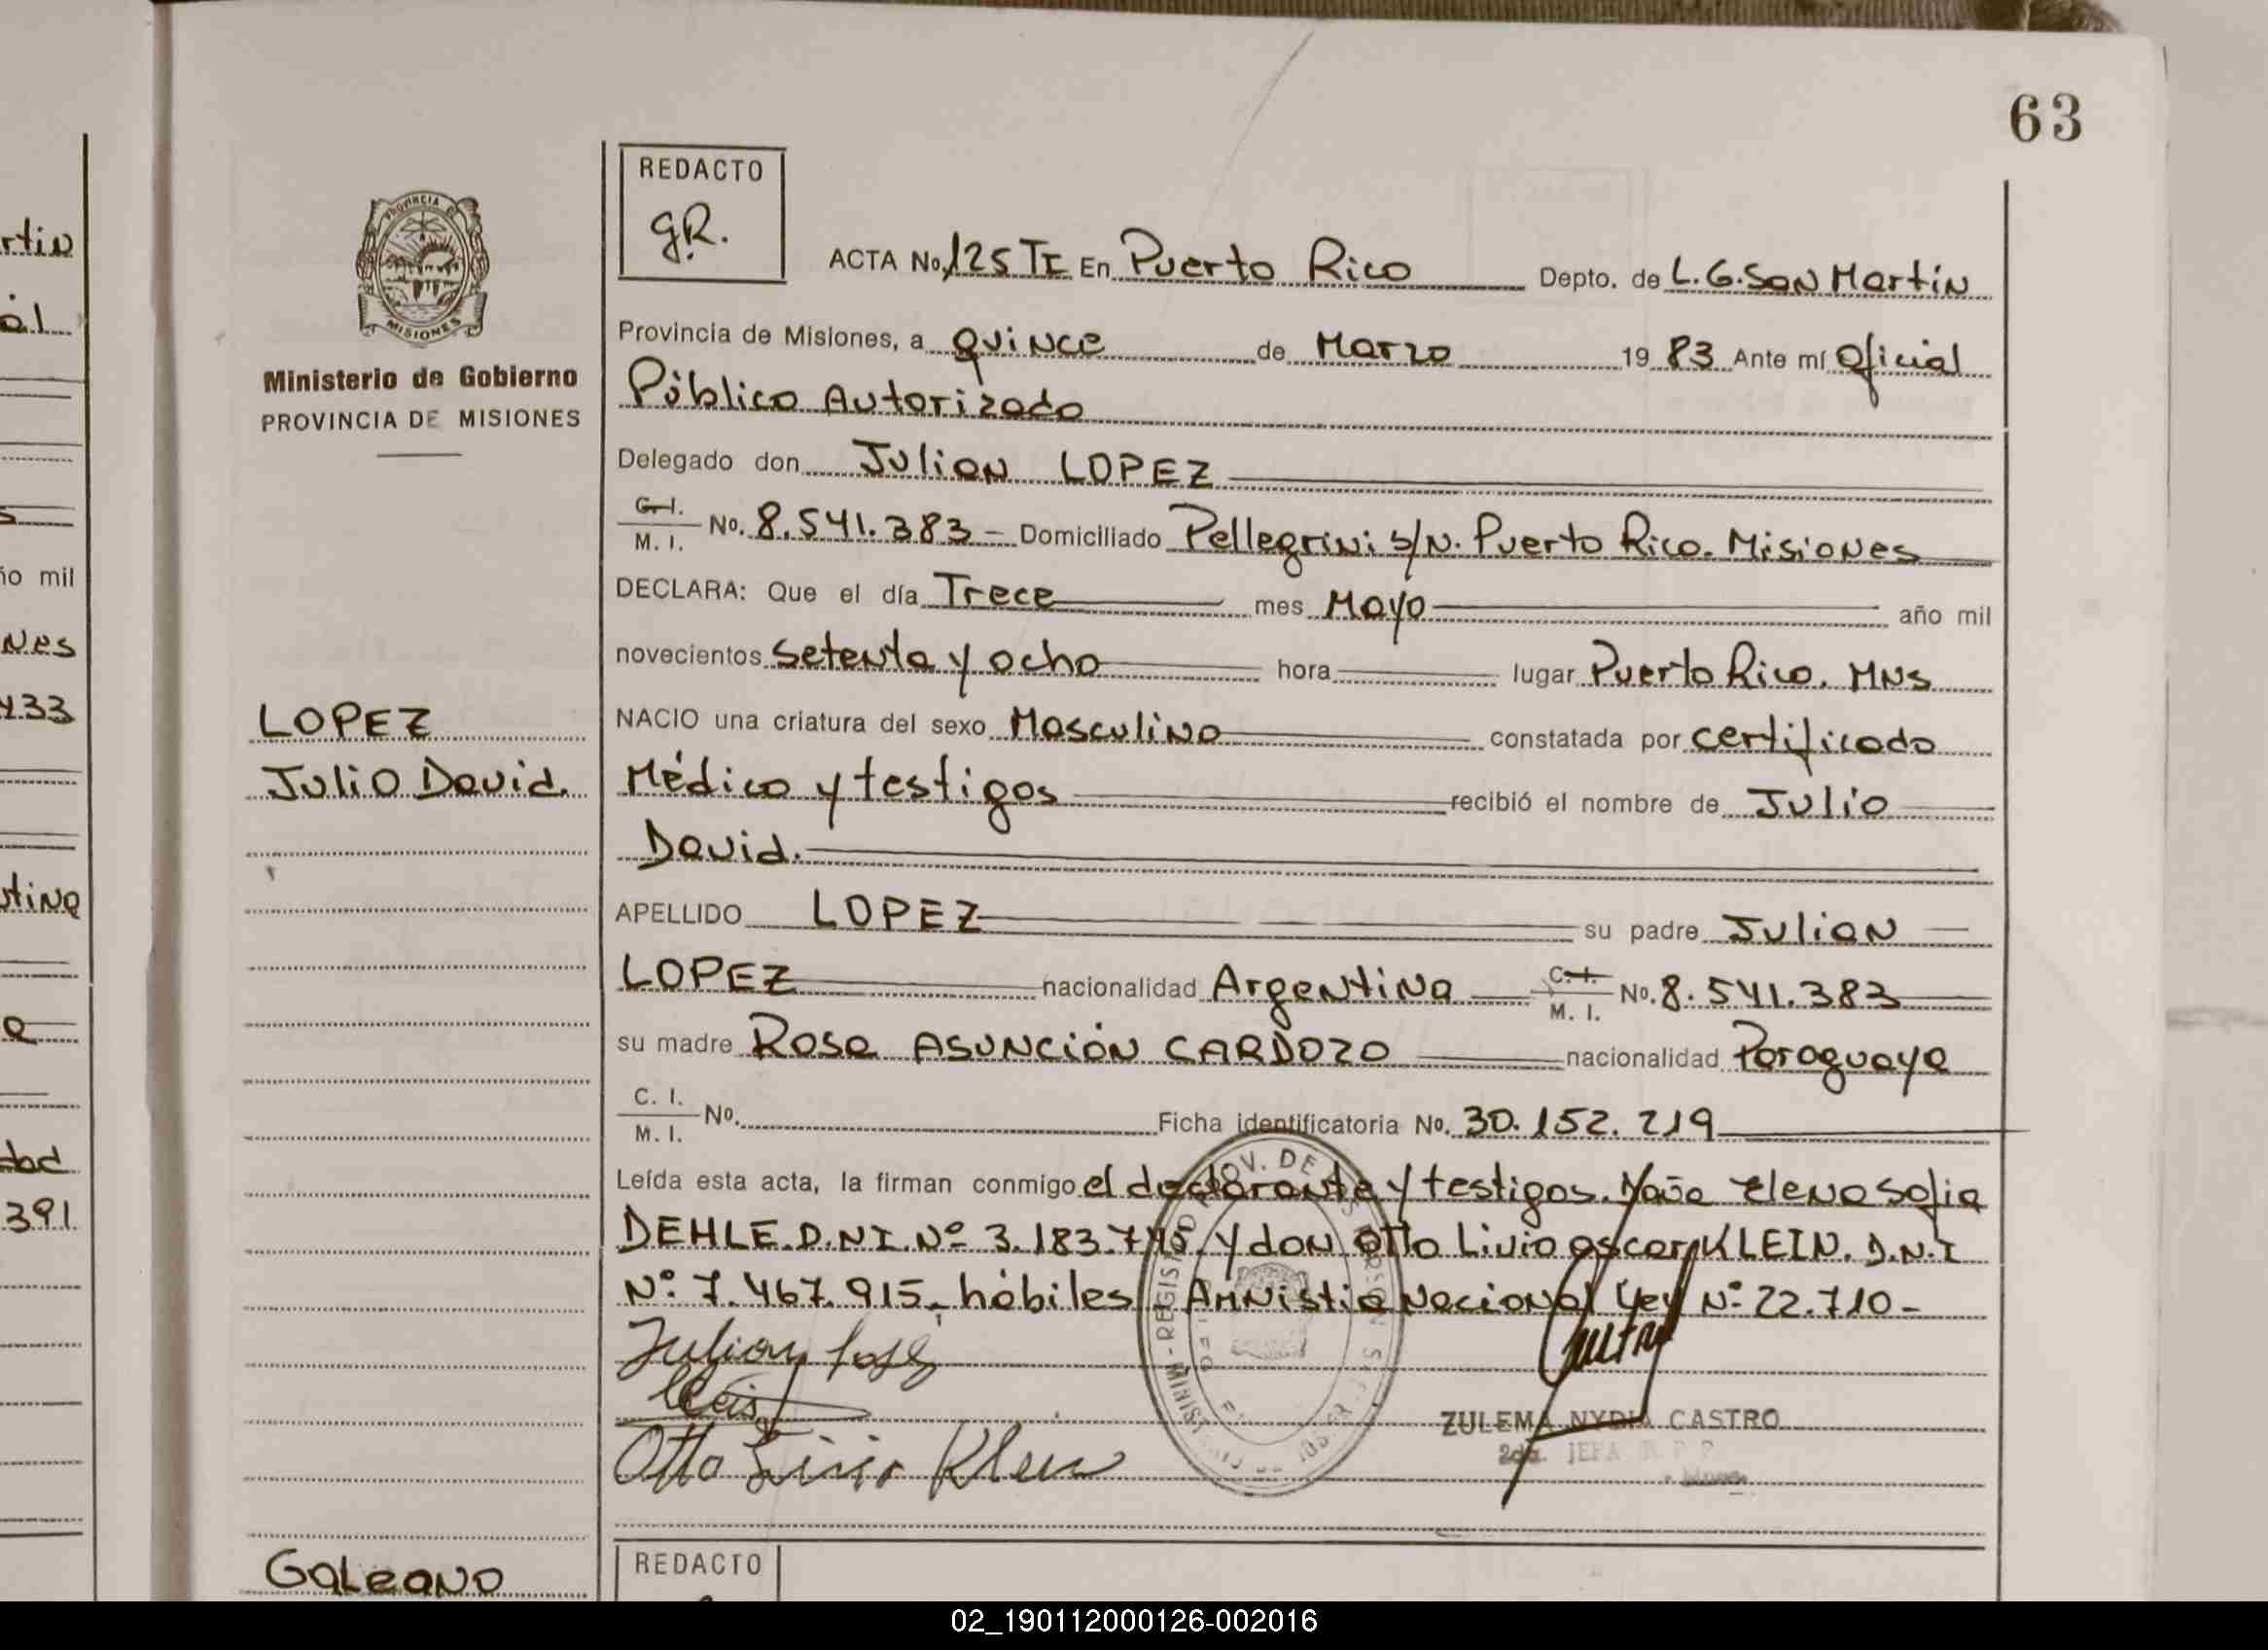 63
rtin
al
ño mil
nes
433
391
PROVINCIA DE
MISIONES
Ministerio de Gobierno
PROVINCIA DE MISIONES
LOPEZ
Julio David.
Galeano
REDACTO
g.R.
ACTA No. 125 TI En Puerto Rico Depto. de L. G. San Martín
Provincia de Misiones, a quince de Marzo 19 83 Ante mí Oficial
Público Autorizado
Delegado don Julian LOPEZ
C. I. / M. I. No. 8.541.383 - Domiciliado Pellegrini s/n. Puerto Rico. Misiones
DECLARA: Que el día Trece mes Mayo año mil
novecientos setenta y ocho hora lugar Puerto Rico. Mns
NACIO una criatura del sexo Masculino constatada por certificado
Médico y testigos recibió el nombre de Julio
David.
APELLIDO LOPEZ su padre Julian
LOPEZ nacionalidad Argentina C. I. / M. I. No. 8.541.383
su madre Rosa Asunción CARDOZO nacionalidad Paraguaya
C. I. / M. I. No. Ficha identificatoria No. 30.152.219
Leída esta acta, la firman conmigo el declarante y testigos. Doña Elena Sofia
DEHLE. D.N.I. Nº 3.183.745 y don Otto Livio Oscar KLEIN. D.N.I
Nº 7.467.915. hábiles Amnistia Nacional Ley Nº 22.710-
Julian Lopez
Otto Livio Klein
ZULEMA NYDIA CASTRO
2da. JEFA R. P. P.
REDACTO
02_190112000126-002016